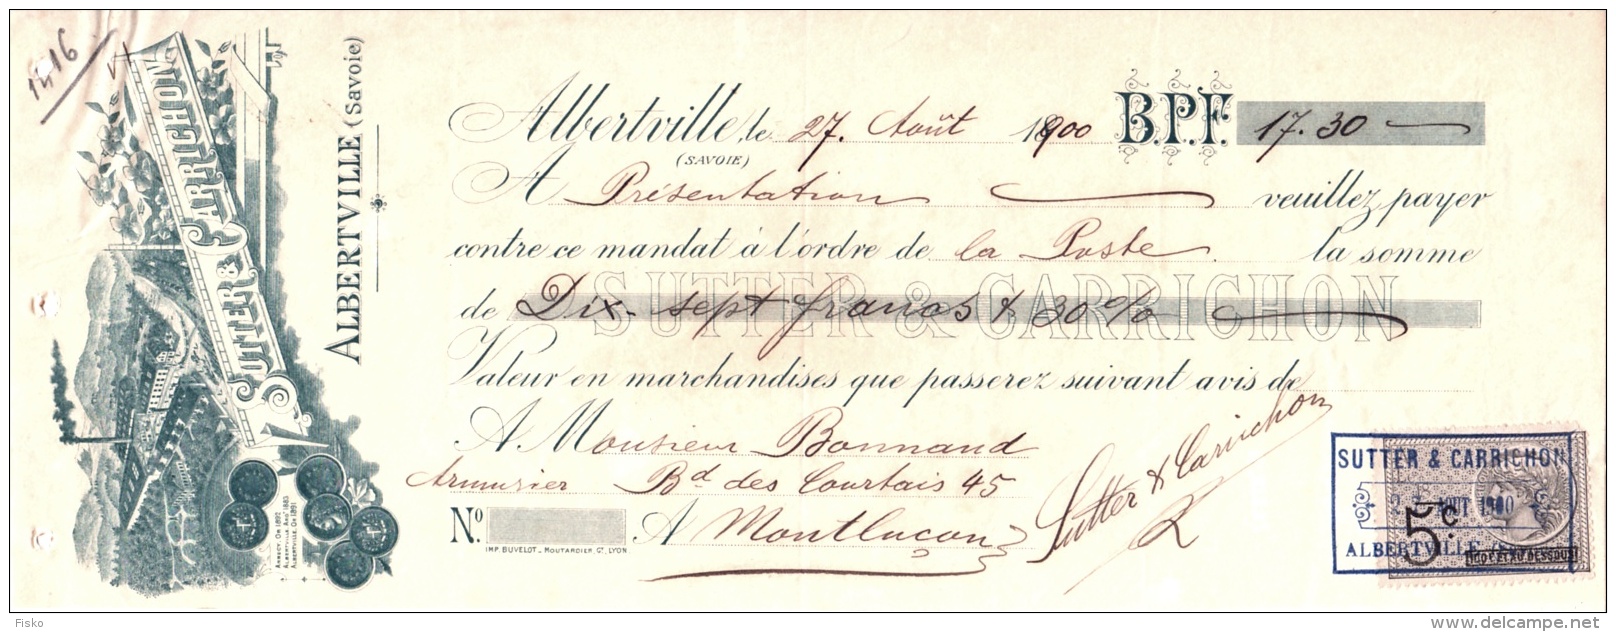 1416
SUTTER & CARRICHON
ALBERTVILLE (Savoie)
ANNECY. OR. 1892
ALBERTVILLE. ARG.T 1883
ALBERTVILLE. OR 1891
Albertville, le 27. Août 1900 B.P.F. 17.30
(SAVOIE)
A Présentation veuillez payer
contre ce mandat à l'ordre de la Poste. la somme
de Dix-sept francs & 30 %
SUTTER & CARRICHON
Valeur en marchandises que passerez suivant avis de
A Monsieur Bonnaud
Armurier Bd des Courtais 45
No. A Montluçon
Sutter & Carrichon
IMP. BUVELOT - MOUTARDIER, Gt, LYON
SUTTER & CARRICHON
27 AOUT 1900
ALBERTVILLE
5c
100 F. ET AU DESSOUS
Fisko
www.delcampe.net